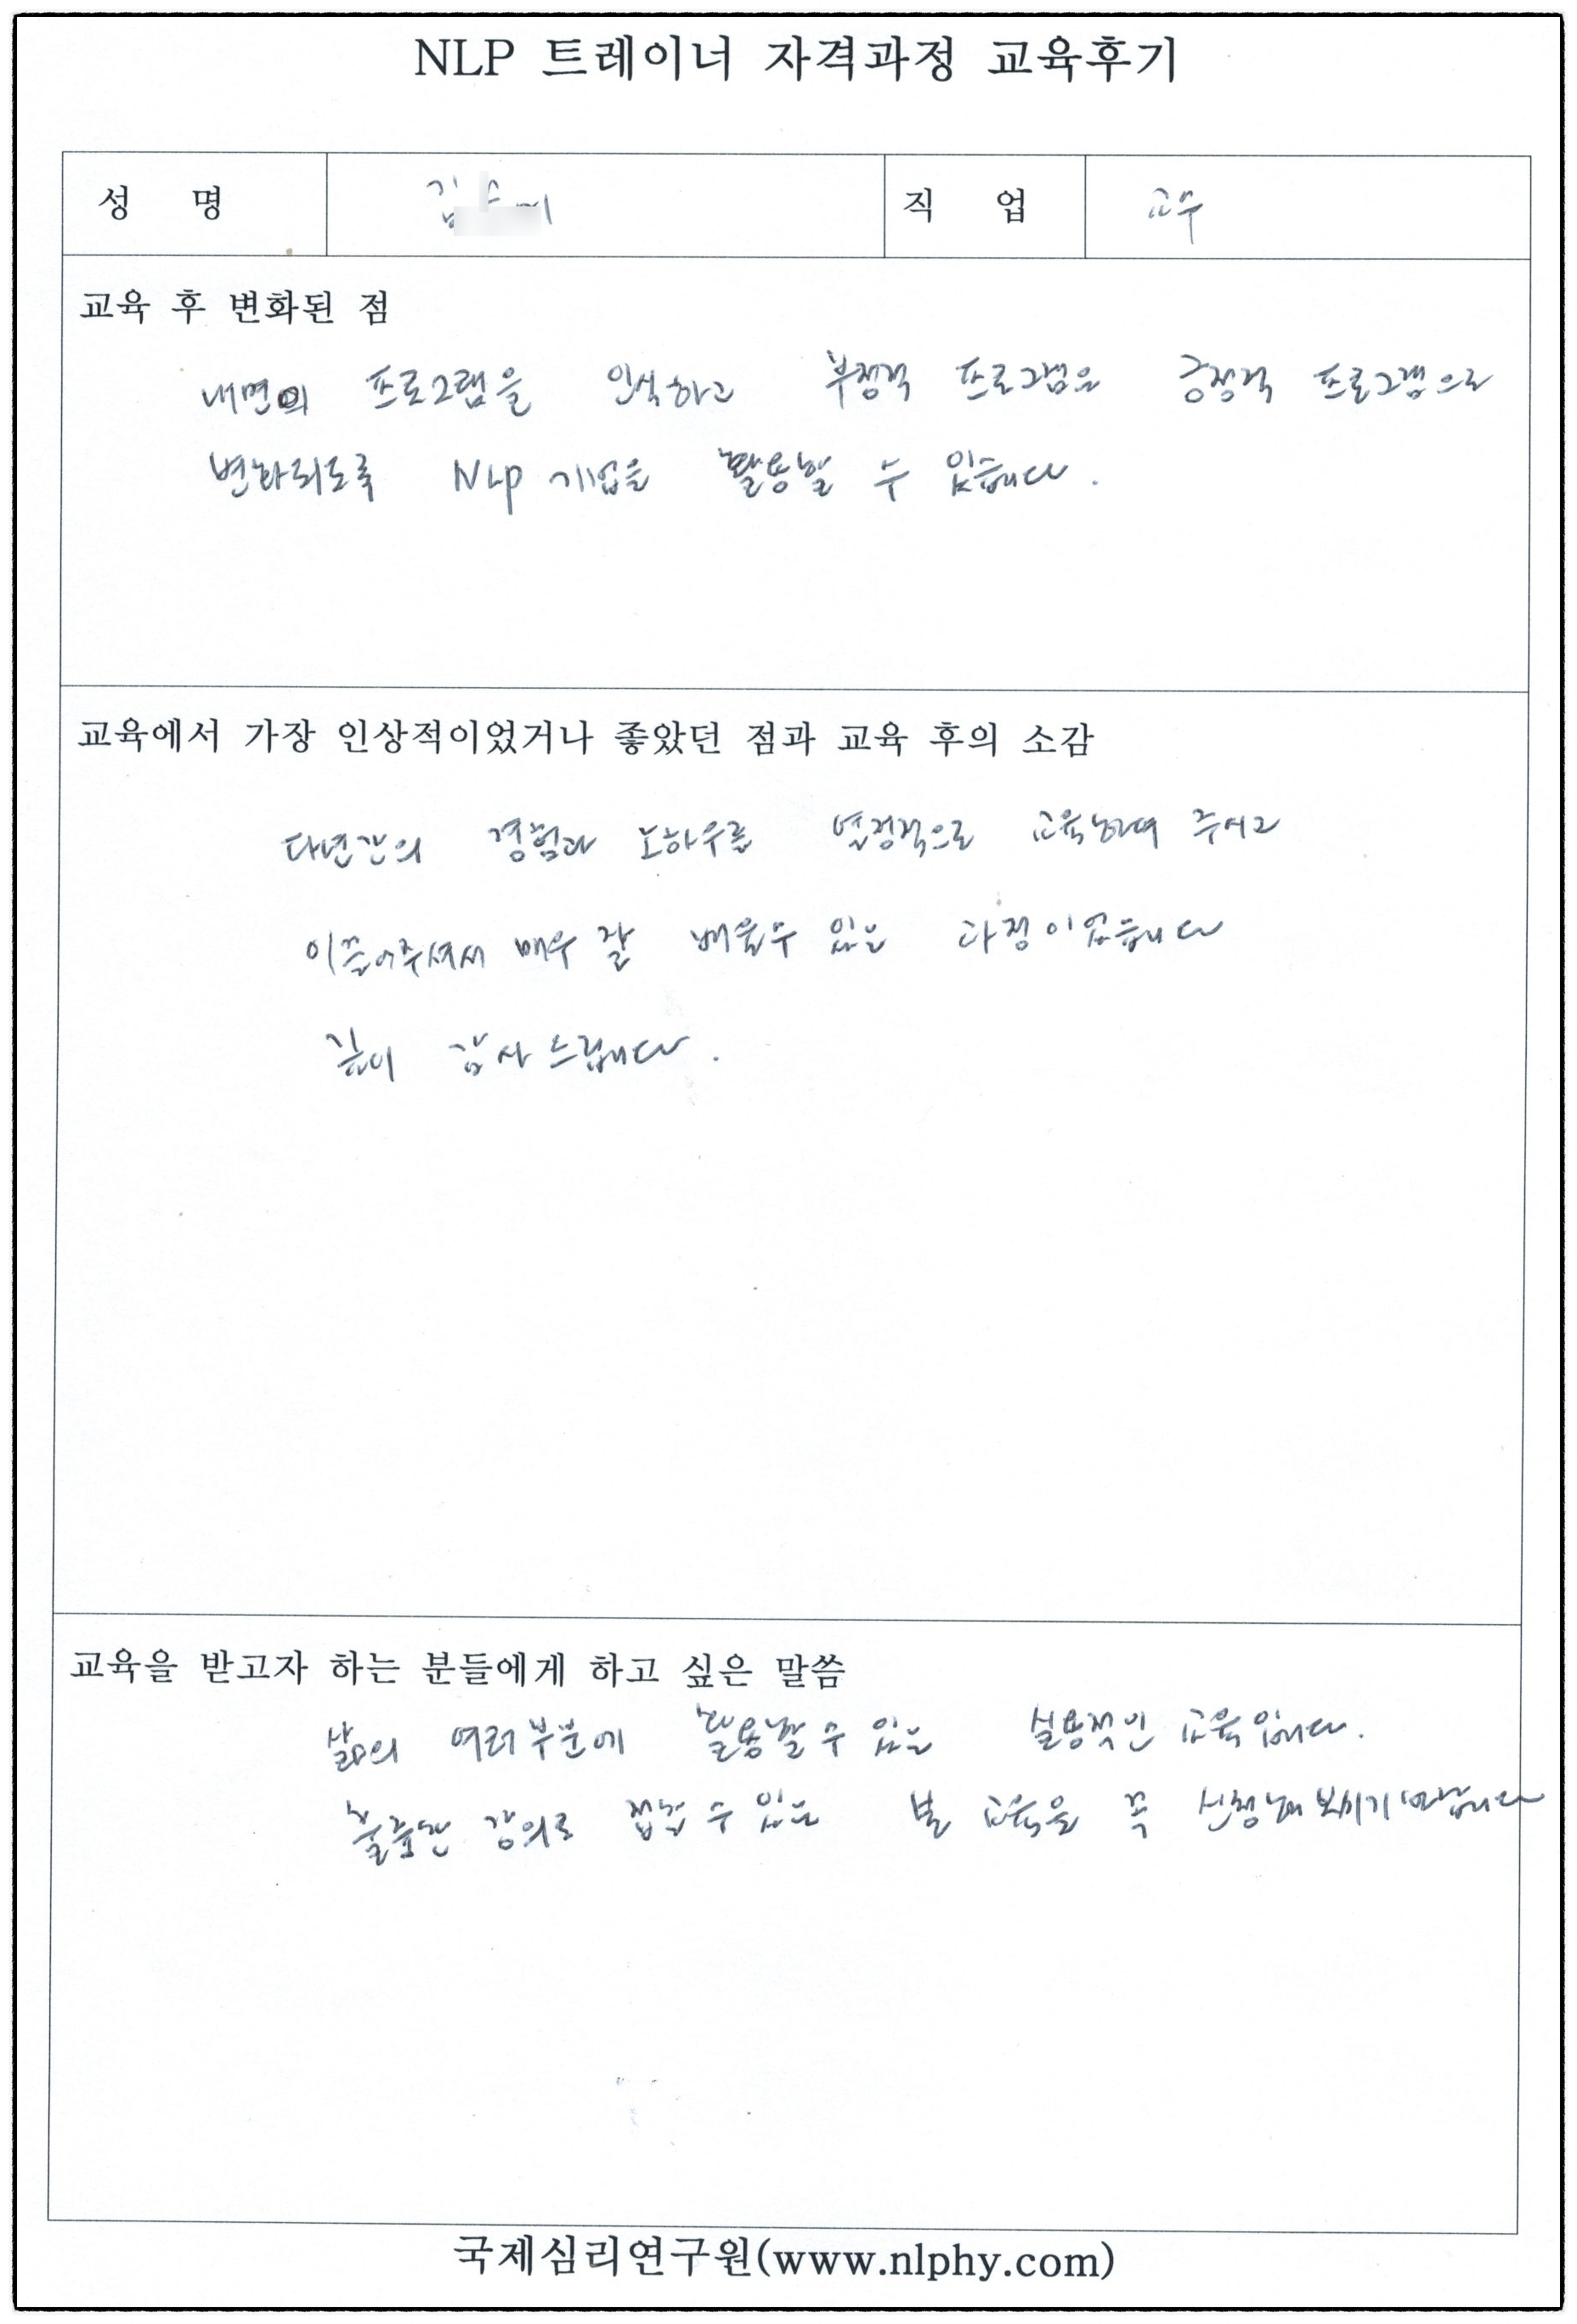 NLP 트레이너 자격과정 교육후기
성 명 김 직 업 교수
교육 후 변화된 점
내면의 프로그램을 인식하고 부정적 프로그램은 긍정적 프로그램으로
변화되도록 NLP 기업을 활용할 수 있습니다.
교육에서 가장 인상적이었거나 좋았던 점과 교육 후의 소감
다년간의 경험과 노하우를 열정적으로 교육하여 주시고
이끌어주셔서 매우 잘 배울수 있는 과정이었습니다
깊이 감사드립니다.
교육을 받고자 하는 분들에게 하고 싶은 말씀
삶의 여러부분에 활용할 수 있는 실용적인 교육입니다.
훌륭한 강의로 접할 수 있는 본 교육을 꼭 신청해 보시기 바랍니다
국제심리연구원(www.nlphy.com)